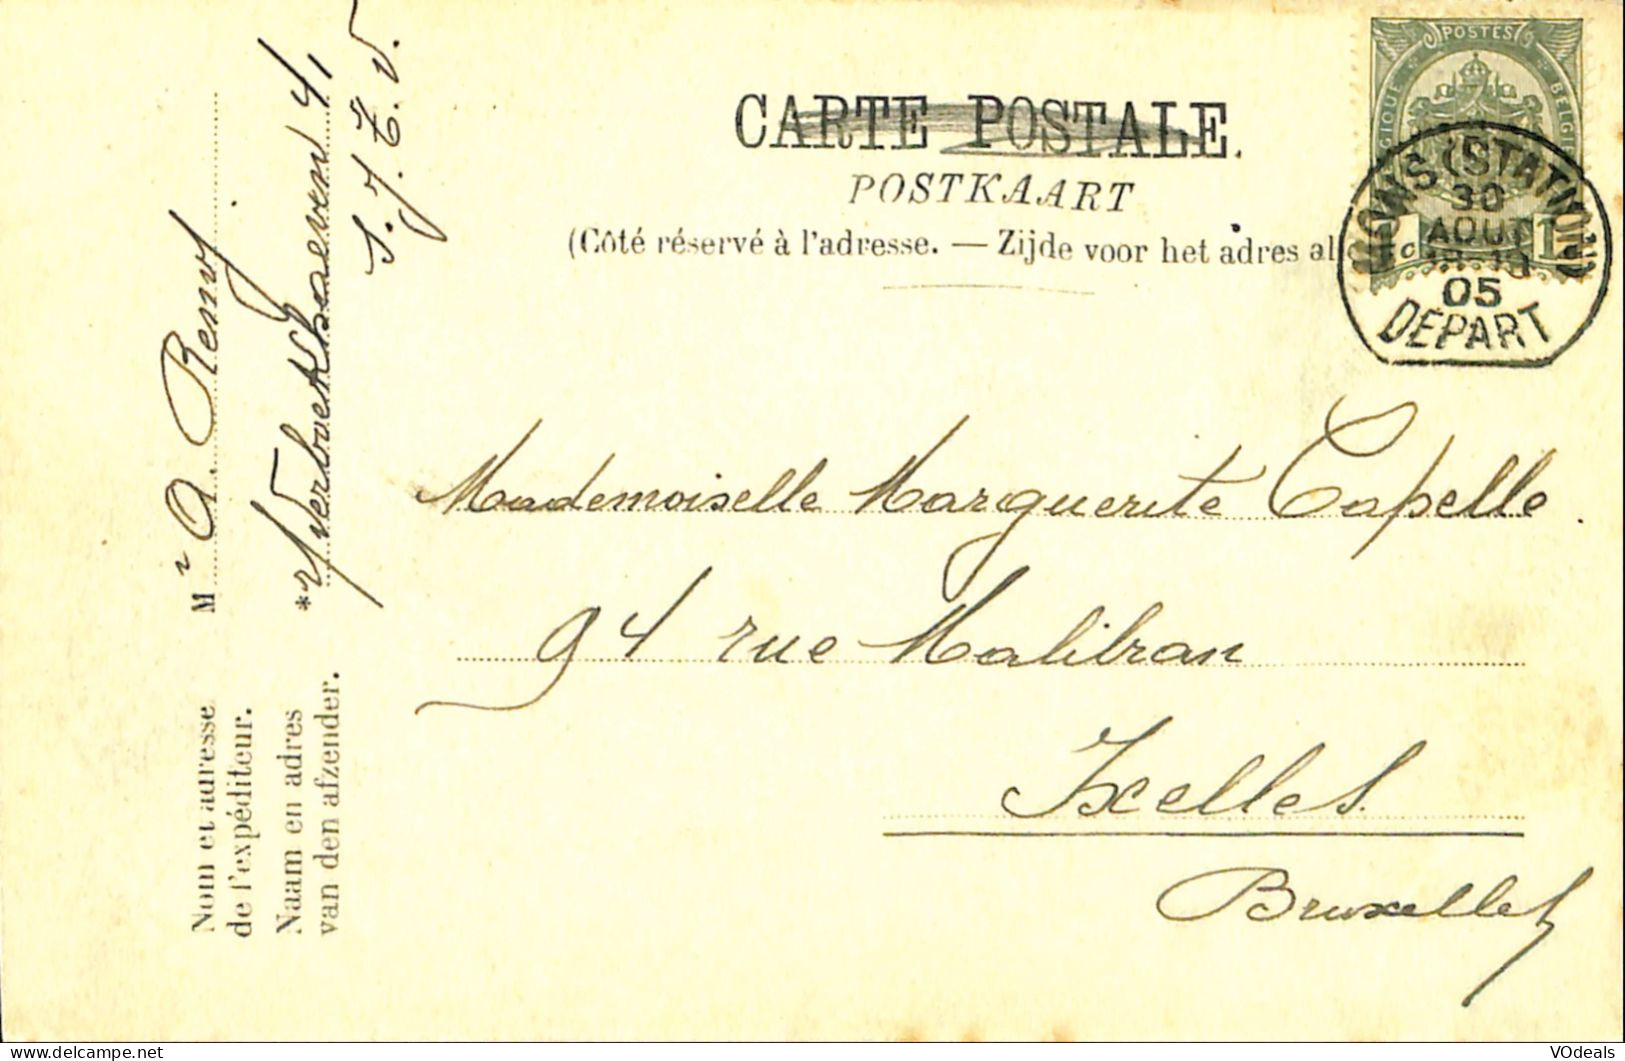 CARTE POSTALE.
POSTKAART
(Côté réservé à l'adresse. — Zijde voor het adres al
POSTES
BELGI
GIQUE
MONS (STATION)
30
AOUT
05
DÉPART
1
Mademoiselle Marguerite Capelle
94 rue Malibran
Ixelles
Bruxelles
Nom et adresse
de l'expéditeur.
Naam en adres
van den afzender.
Mr A. Remy
r/Verboekhaeven 4,
VOdeals